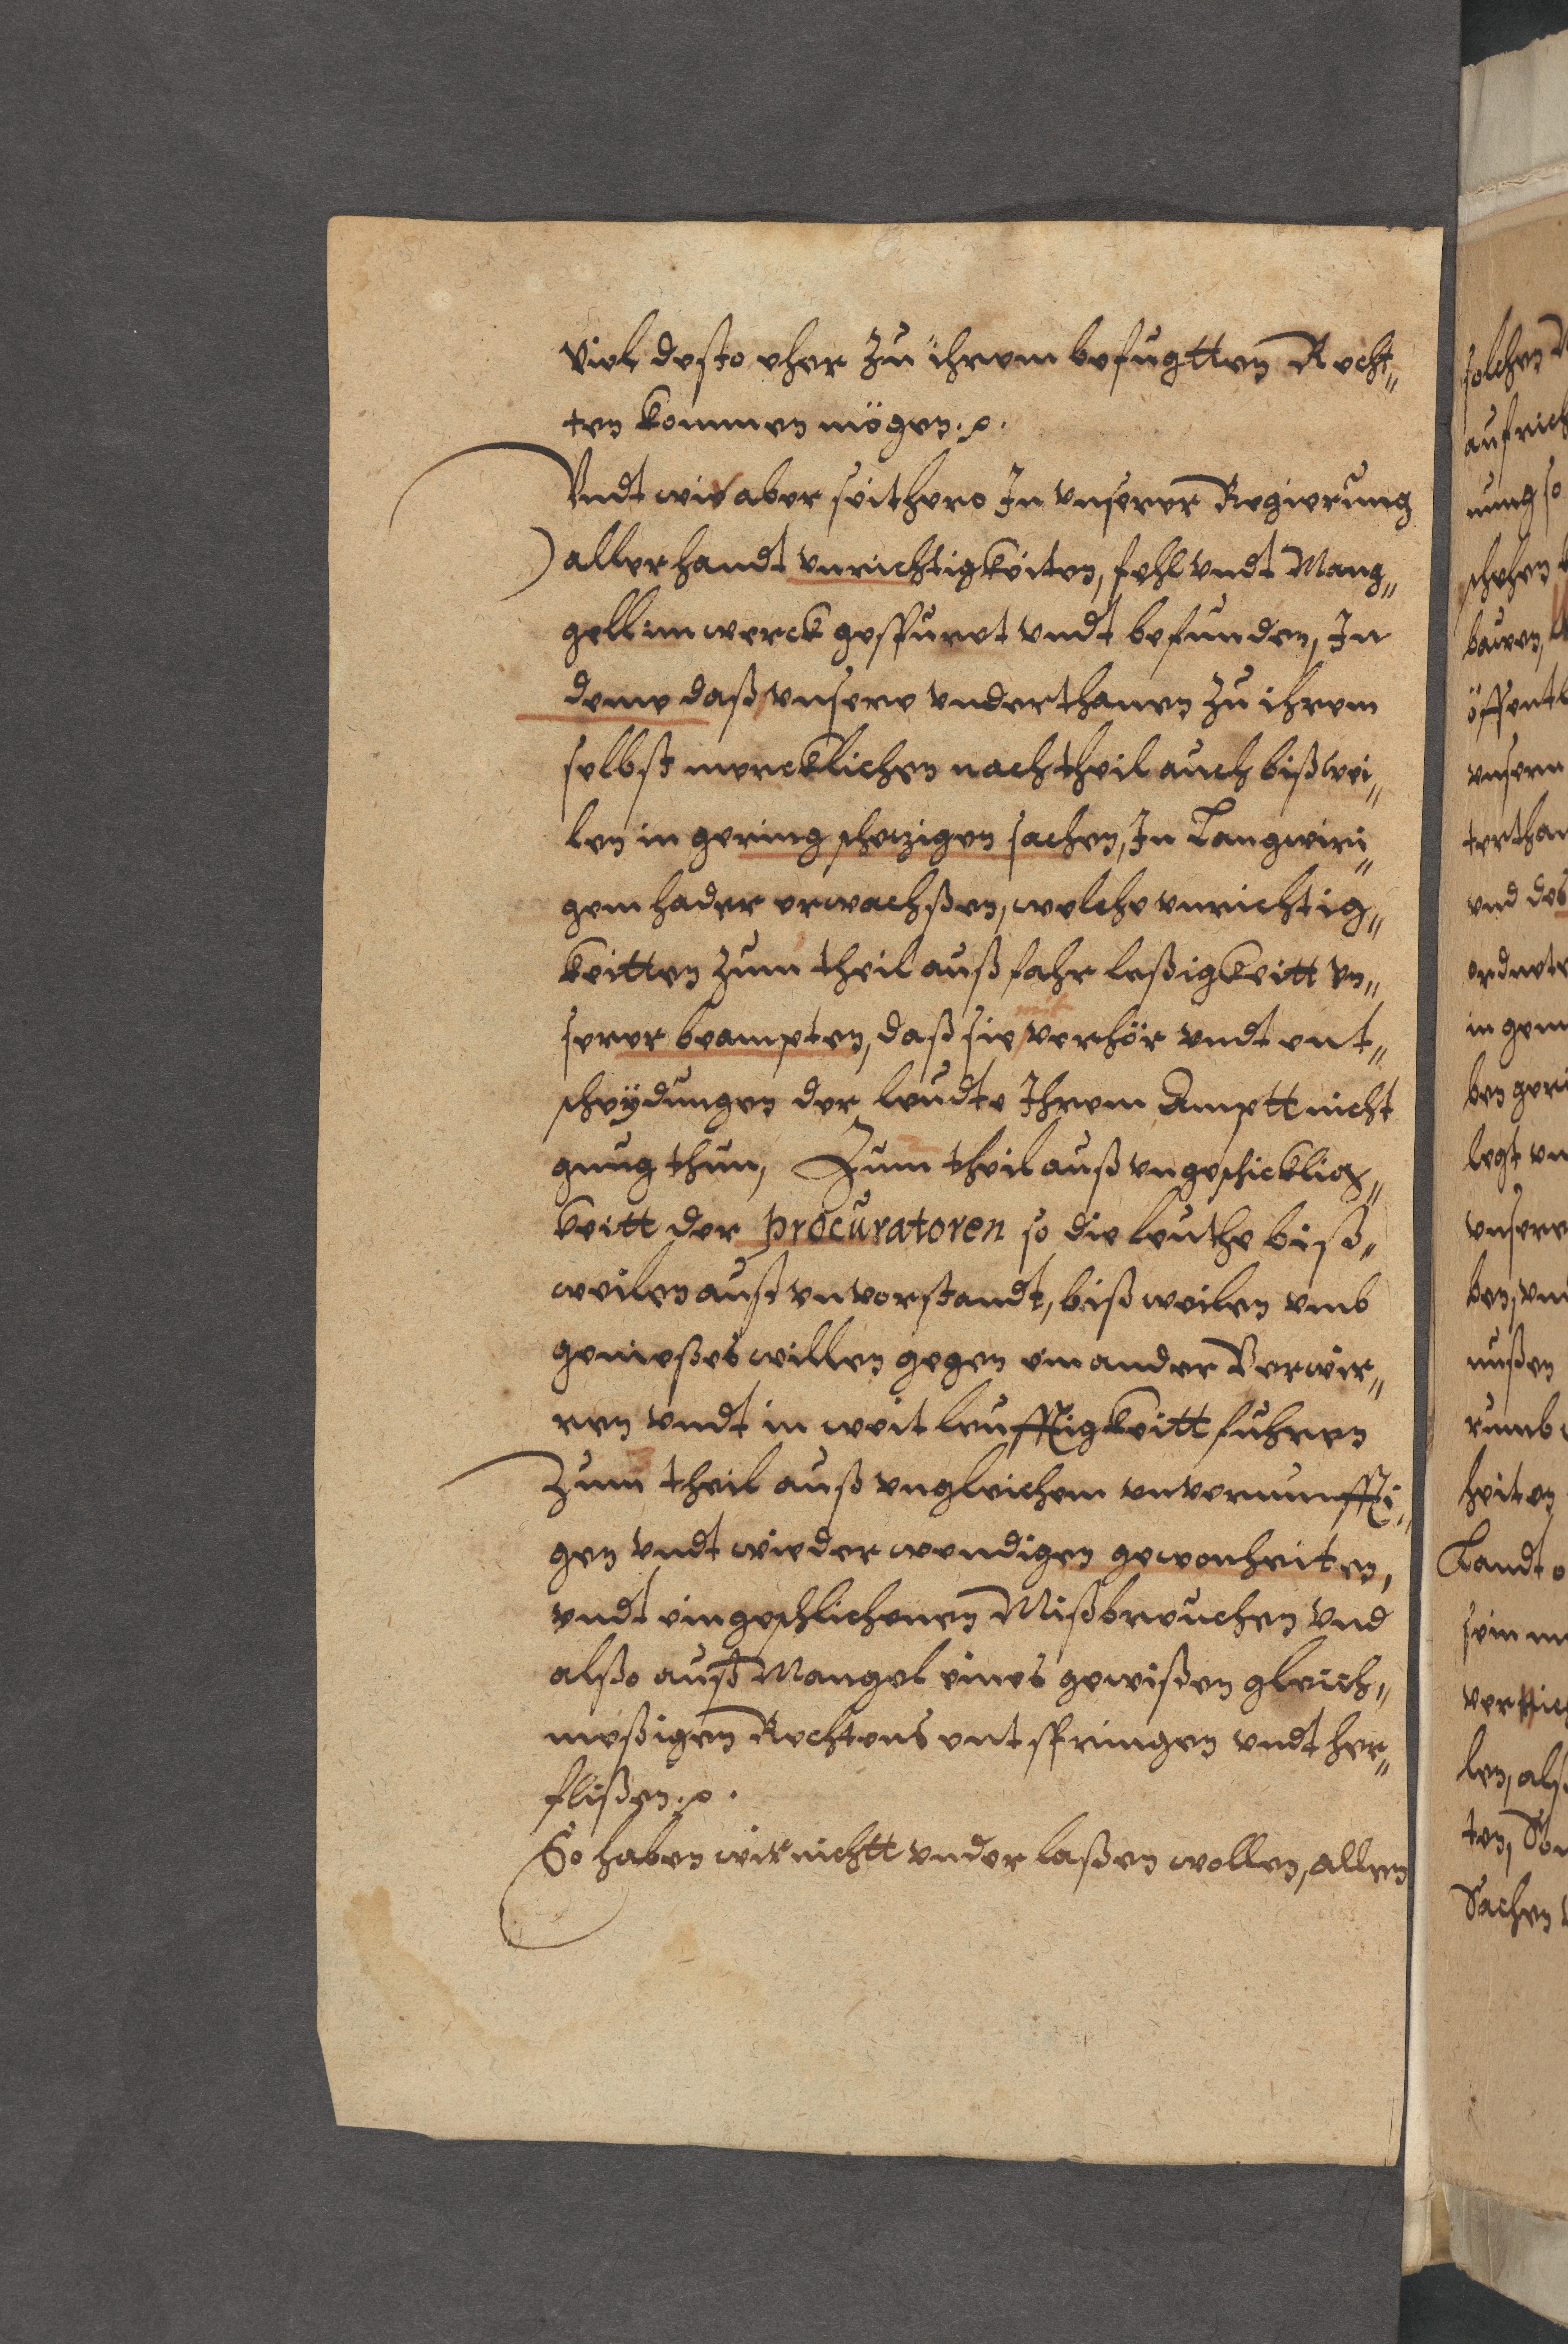 Viel desto eher zu ihrem befugtten Recht„
ten kommen mögen.
Vndt wie aber seithero In vnserer Regierung
allerhandt vnrichtigkeiten, fehl vndt Mang„
gell im werck gespuret vndt befunden, In
deme daß vnsere vnderthanen zu ihrem
selbst mercklichen nachtheil auch bißwei„
len in gering schezigen sachen, In Langwiri„
gem hader erwachßen, welche vnrichtig„
keitten zum theil auß fahrleßigkeitt vn„
mit
serer beampten, daß sie verhör vndt ent„
scheydungen der leudte Ihrem Amptt nicht
gnug thun, Zum theil auß vngeschicklig„
keitt der Procuratoren so die leuthe biß„
weilen auß vnverstandt, bißweilen vmb
genießes willen gegen einander Verwir„
ren vndt in weitleufftigkeitt fuhren
3
Zum theil auß vngleichem vnvernunffti„
gen vndt wiederwendigen gewonheiten,
vndt eingeschlichenen Mißbreuchen vnd
alßo auß Mangel eines gewißen gleich„
meßigen Rechtens entspringen vndt her„
flißen.
So haben wir nichtt vnderlaßen wollen, allen
solchen
aufrich
nung so
schehen
bawen,
öffentl
vnsern
terthan
vnd des
ordnete
in gem
ben geri
legt vn
vnsere
ben, vn
nußen
rumb
heiten
Landt o
sein
len, alß
ten, Son
Sachen